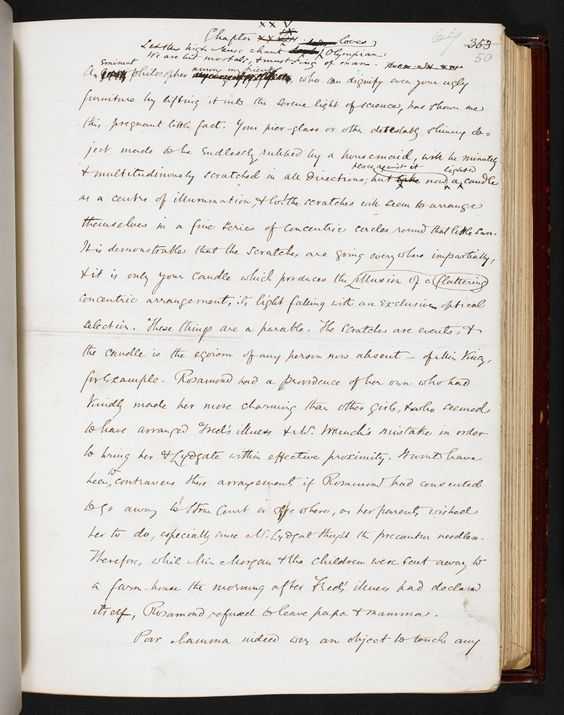 353
50
Chapter XXV
Let the high Muse chant loves Olympian:
We are but mortals, & must sing of man.
An eminent philosopher among my friends who can dignify even your ugly
furniture by lifting it into the serene light of science, has shown me
this pregnant little fact. Your pier-glass or other detestably shining ob-
ject made to be endlessly rubbed by a housemaid, will be minutely
& multitudinously scratched in all directions; but place against it now a lighted candle
as a centre of illumination, & lo! the scratches will seem to arrange
themselves in a fine series of concentric circles round that little sun.
It is demonstrable that the scratches are going everywhere impartially,
& it is only your candle which produces the illusion of a flattering
concentric arrangement, its light falling with an exclusive optical
selection. These things are a parable. The scratches are events, &
the candle is the egoism of any person now absent – of Miss Vincy,
for example. Rosamond had a Providence of her own who had
kindly made her more charming than other girls, & who seemed
to have arranged Fred's illness & Mr. Wrench's mistake in order
to bring her & Lydgate within effective proximity. It would have
been to contravene these arrangement if Rosamond had consented
to go away to Stone Court or elsewhere, as her parents wished
her to do, especially since Mr. Lydgate thought the precaution needless.
Therefore, while Miss Morgan & the children were sent away to
a farm-house the morning after Fred's illness had declared
itself, Rosamond refused to leave papa & mamma.
Poor Mamma indeed was an object to touch any